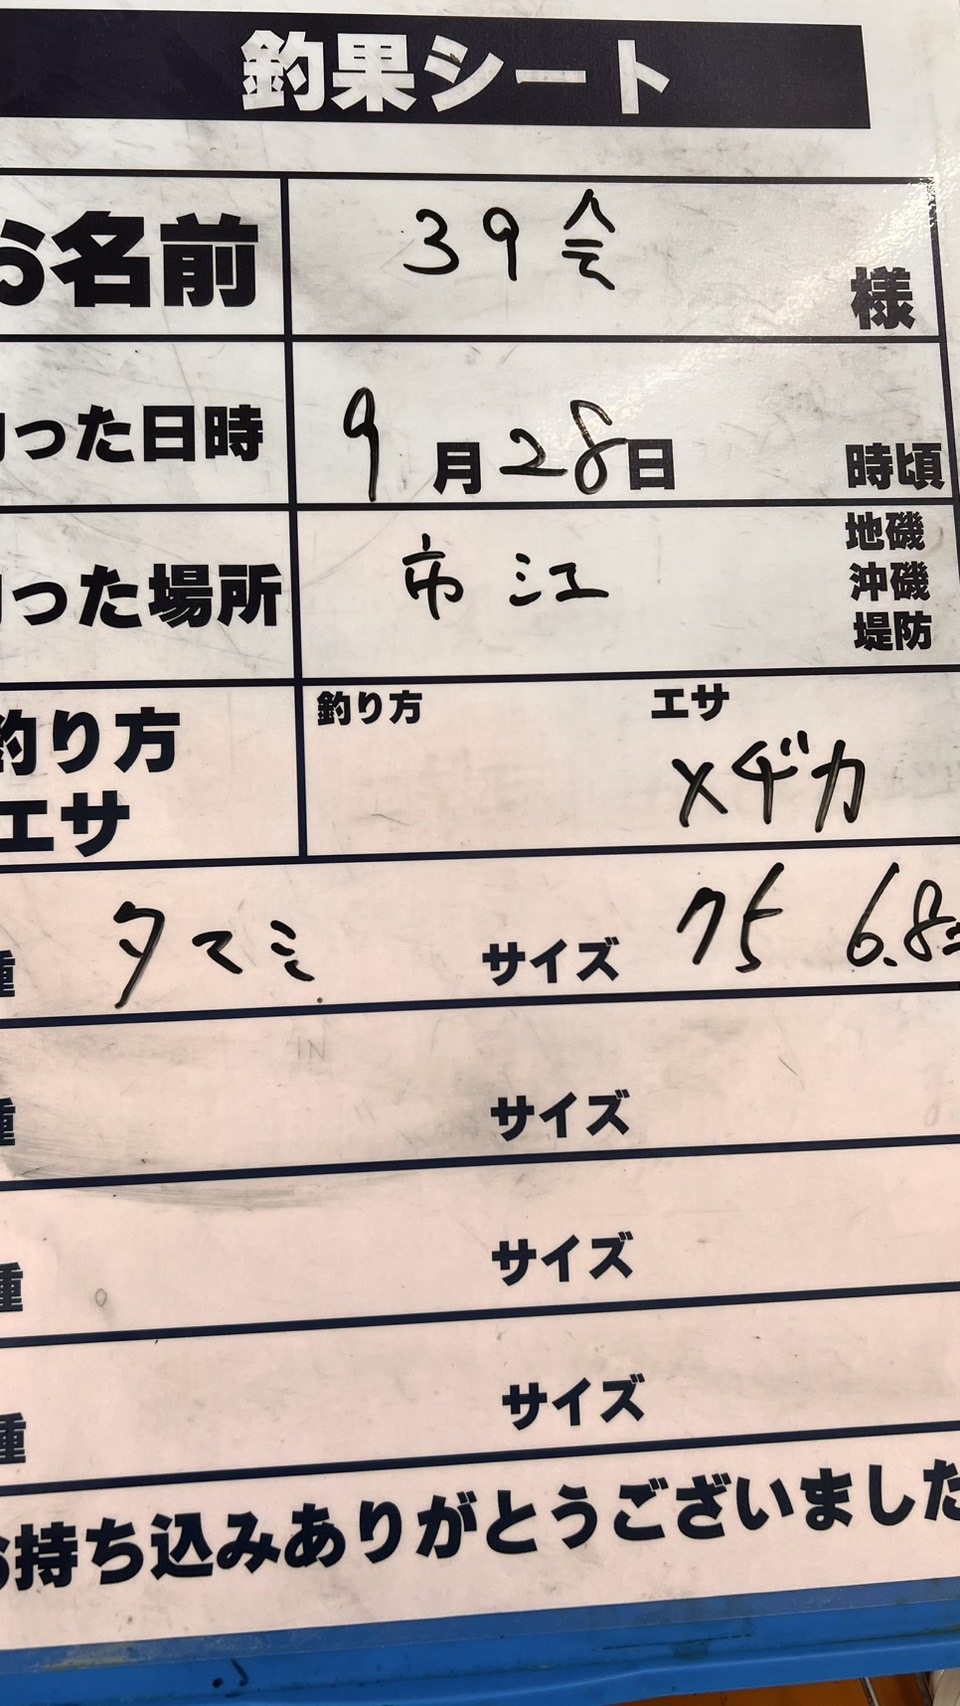 釣果シート
お名前 39会 様
釣った日時 9月28日 時頃
釣った場所 市江 地磯
沖磯
堤防
釣り方 エサ
釣り方
エサ メヂカ
種 タマミ サイズ 75 6.8
種 サイズ
種 サイズ
種 サイズ
お持ち込みありがとうございました